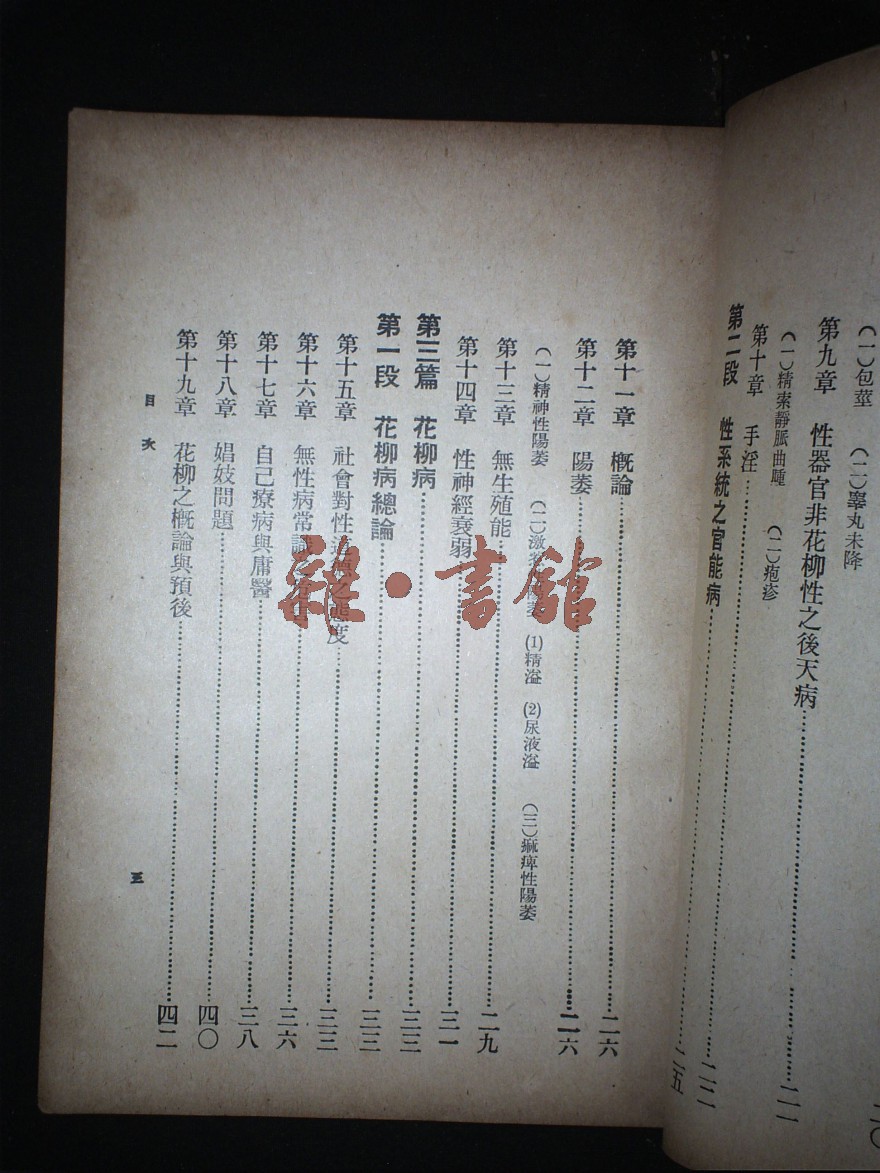 (一)包莖 (二)睾丸未降
第九章 性器官非花柳性之後天病……二一
(一)精索靜脈曲腫 (二)疱疹
第十章 手淫……二二
第二段 性系統之官能病……二五
第十一章 概論……二六
第十二章 陽萎……二六
(一)精神性陽萎 (二)激 (1)精溢 (2)尿液溢 (三)痲痺性陽萎
第十三章 無生殖能……二九
第十四章 性神經衰弱……三一
第三篇 花柳病……三三
第一段 花柳病總論……三三
第十五章 社會對性 之態度……三三
第十六章 無性病常識……三六
第十七章 自己療病與庸醫……三八
第十八章 娼妓問題……四〇
第十九章 花柳之概論與預後……四二
目次
三
雜·書館